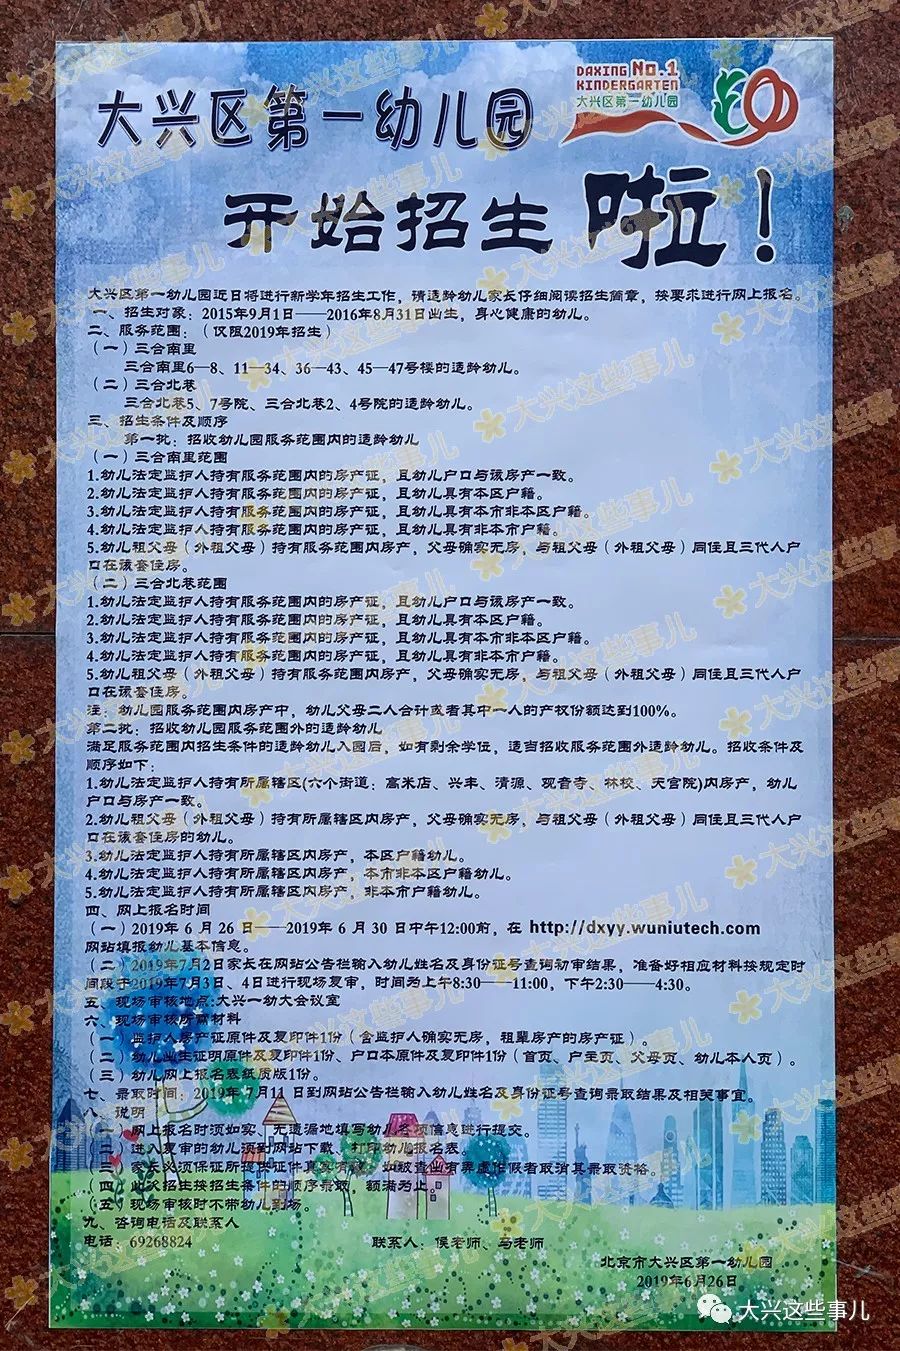 大兴区第一幼儿园
DAXING NO.1
KINDERGARTEN
大兴区第一幼儿园
开始招生啦！
大兴区第一幼儿园近日将进行新学年招生工作，请适龄幼儿家长仔细阅读招生简章，按要求进行网上报名。
一、招生对象：2015年9月1日——2016年8月31日出生，身心健康的幼儿。
二、服务范围：（仅限2019年招生）
（一）三合南里
三合南里6—8、11—34、36—43、45—47号楼的适龄幼儿。
（二）三合北巷
三合北巷5、7号院、三合北巷2、4号院的适龄幼儿。
三、招生条件及顺序
第一批：招收幼儿园服务范围内的适龄幼儿
（一）三合南里范围
1.幼儿法定监护人持有服务范围内的房产证，且幼儿户口与该房产一致。
2.幼儿法定监护人持有服务范围内的房产证，且幼儿具有本区户籍。
3.幼儿法定监护人持有服务范围内的房产证，且幼儿具有本市非本区户籍。
4.幼儿法定监护人持有服务范围内的房产证，且幼儿具有非本市户籍。
5.幼儿祖父母（外祖父母）持有服务范围内房产，父母确实无房，与祖父母（外祖父母）同住且三代人户
口在该套住房。
（二）三合北巷范围
1.幼儿法定监护人持有服务范围内的房产证，且幼儿户口与该房产一致。
2.幼儿法定监护人持有服务范围内的房产证，且幼儿具有本区户籍。
3.幼儿法定监护人持有服务范围内的房产证，且幼儿具有本市非本区户籍。
4.幼儿法定监护人持有服务范围内的房产证，且幼儿具有非本市户籍。
5.幼儿祖父母（外祖父母）持有服务范围内房产，父母确实无房，与祖父母（外祖父母）同住且三代人户
口在该套住房。
注：幼儿园服务范围内房产中，幼儿父母二人合计或者其中一人的产权份额达到100%。
第二批：招收幼儿园服务范围外的适龄幼儿
满足服务范围内招生条件的适龄幼儿入园后，如有剩余学位，适当招收服务范围外适龄幼儿。招收条件及
顺序如下：
1.幼儿法定监护人持有所属辖区(六个街道：高米店、兴丰、清源、观音寺、林校、天宫院)内房产，幼儿
户口与房产一致。
2.幼儿祖父母（外祖父母）持有所属辖区内房产，父母确实无房，与祖父母（外祖父母）同住且三代人户
口在该套住房的幼儿。
3.幼儿法定监护人持有所属辖区内房产，本区户籍幼儿。
4.幼儿法定监护人持有所属辖区内房产，本市非本区户籍幼儿。
5.幼儿法定监护人持有所属辖区内房产，非本市户籍幼儿。
四、网上报名时间
（一）2019年 6 月 26 日——2019年 6 月 30 日中午12:00前，在 http://dxyy.wuniutech.com
网站填报幼儿基本信息。
（二）2019年7月2日家长在网站公告栏输入幼儿姓名及身份证号查询初审结果，准备好相应材料按规定时
间段于2019年7月3日、4日进行现场复审，时间为上午8:30——11:00，下午2:30——4:30。
五、现场审核地点:大兴一幼大会议室
六、现场审核所需材料
（一）监护人房产证原件及复印件1份（含监护人确实无房，祖辈房产的房产证）。
（二）幼儿出生证明原件及复印件1份、户口本原件及复印件1份（首页、户主页、父母页、幼儿本人页）。
（三）幼儿网上报名表纸质版1份。
七、录取时间：2019年 7月11 日到网站公告栏输入幼儿姓名及身份证号查询录取结果及相关事宜。
八、说明
（一）网上报名时须如实、无遗漏地填写幼儿各项信息进行提交。
（二）进入复审的幼儿须到网站下载、打印幼儿报名表。
（三）家长必须保证所提供证件真实有效，如被查出有弄虚作假者取消其录取资格。
（四）此次招生按招生条件的顺序录取，额满为止。
（五）现场审核时不带幼儿到场。
九、咨询电话及联系人
电话：69268824 联系人：侯老师、马老师
北京市大兴区第一幼儿园
2019年6月26日
大兴这些事儿